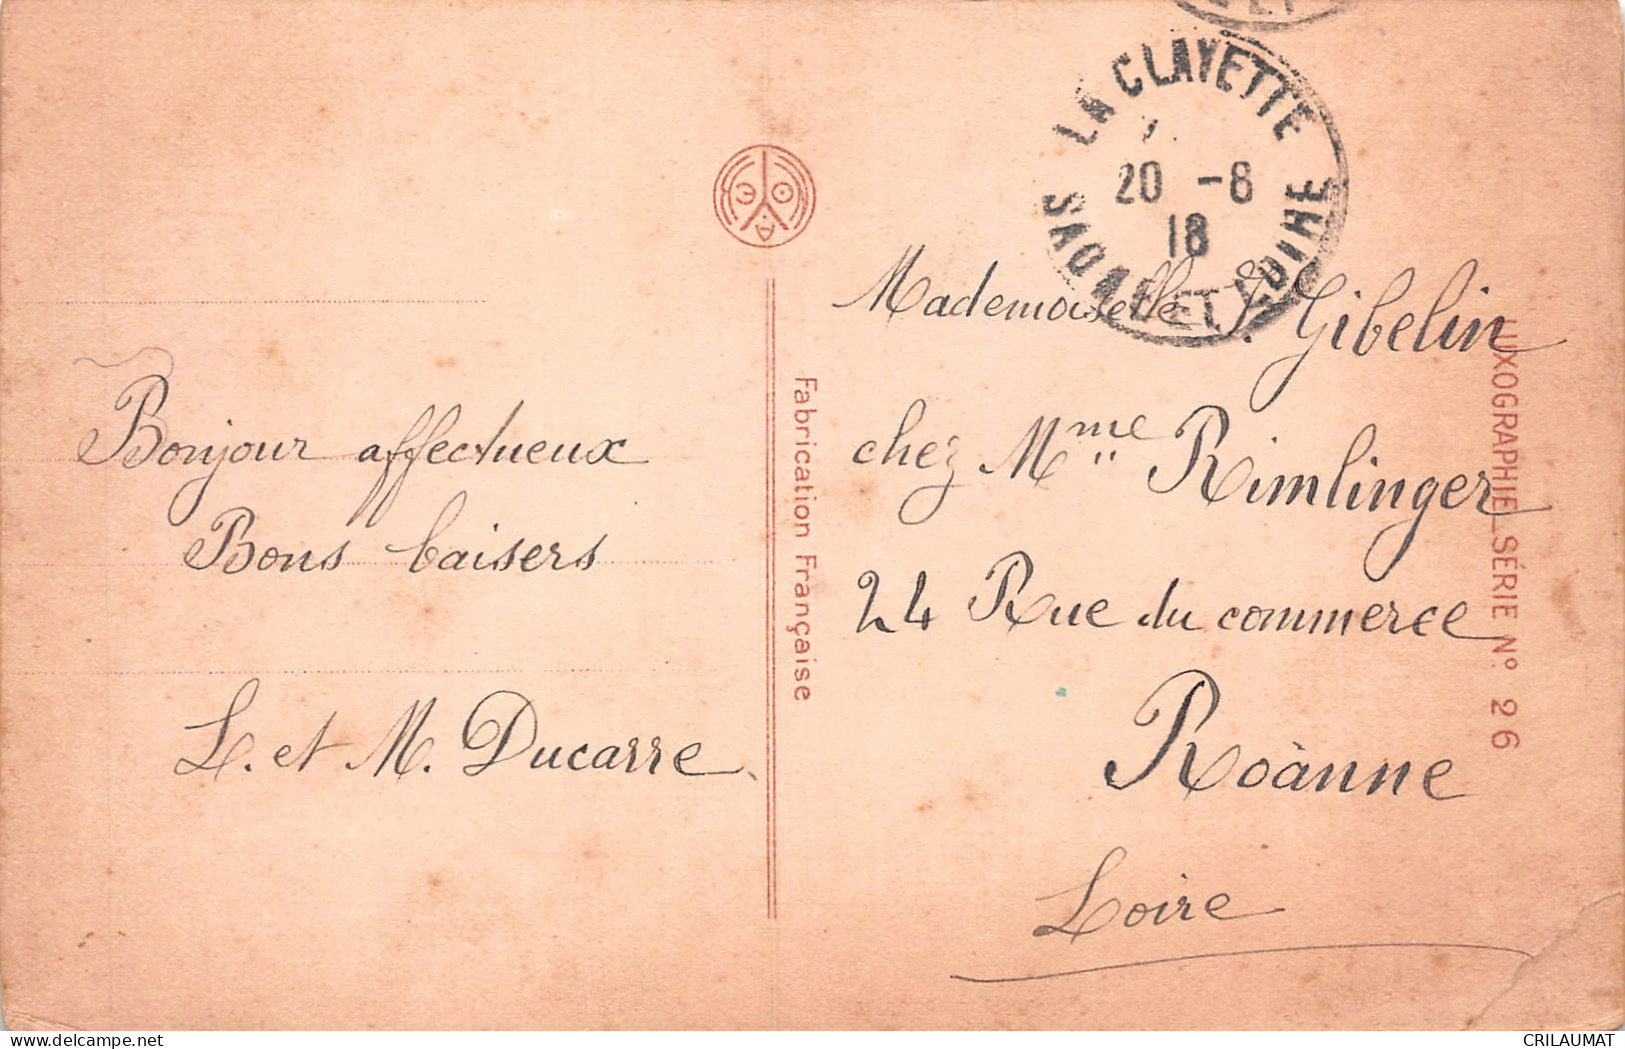 LA CLAYETTE
20 -8
18
SAONE ET LOIRE
Bonjour affectueux
Bons baisers
L. et M. Ducarre
Fabrication Française
Mademoiselle J. Gibelin
chez Mme Rimlinger
24 Rue du commerce
Roanne
Loire
LUXOGRAPHIE_SÉRIE Nº 26
CRILAUMAT